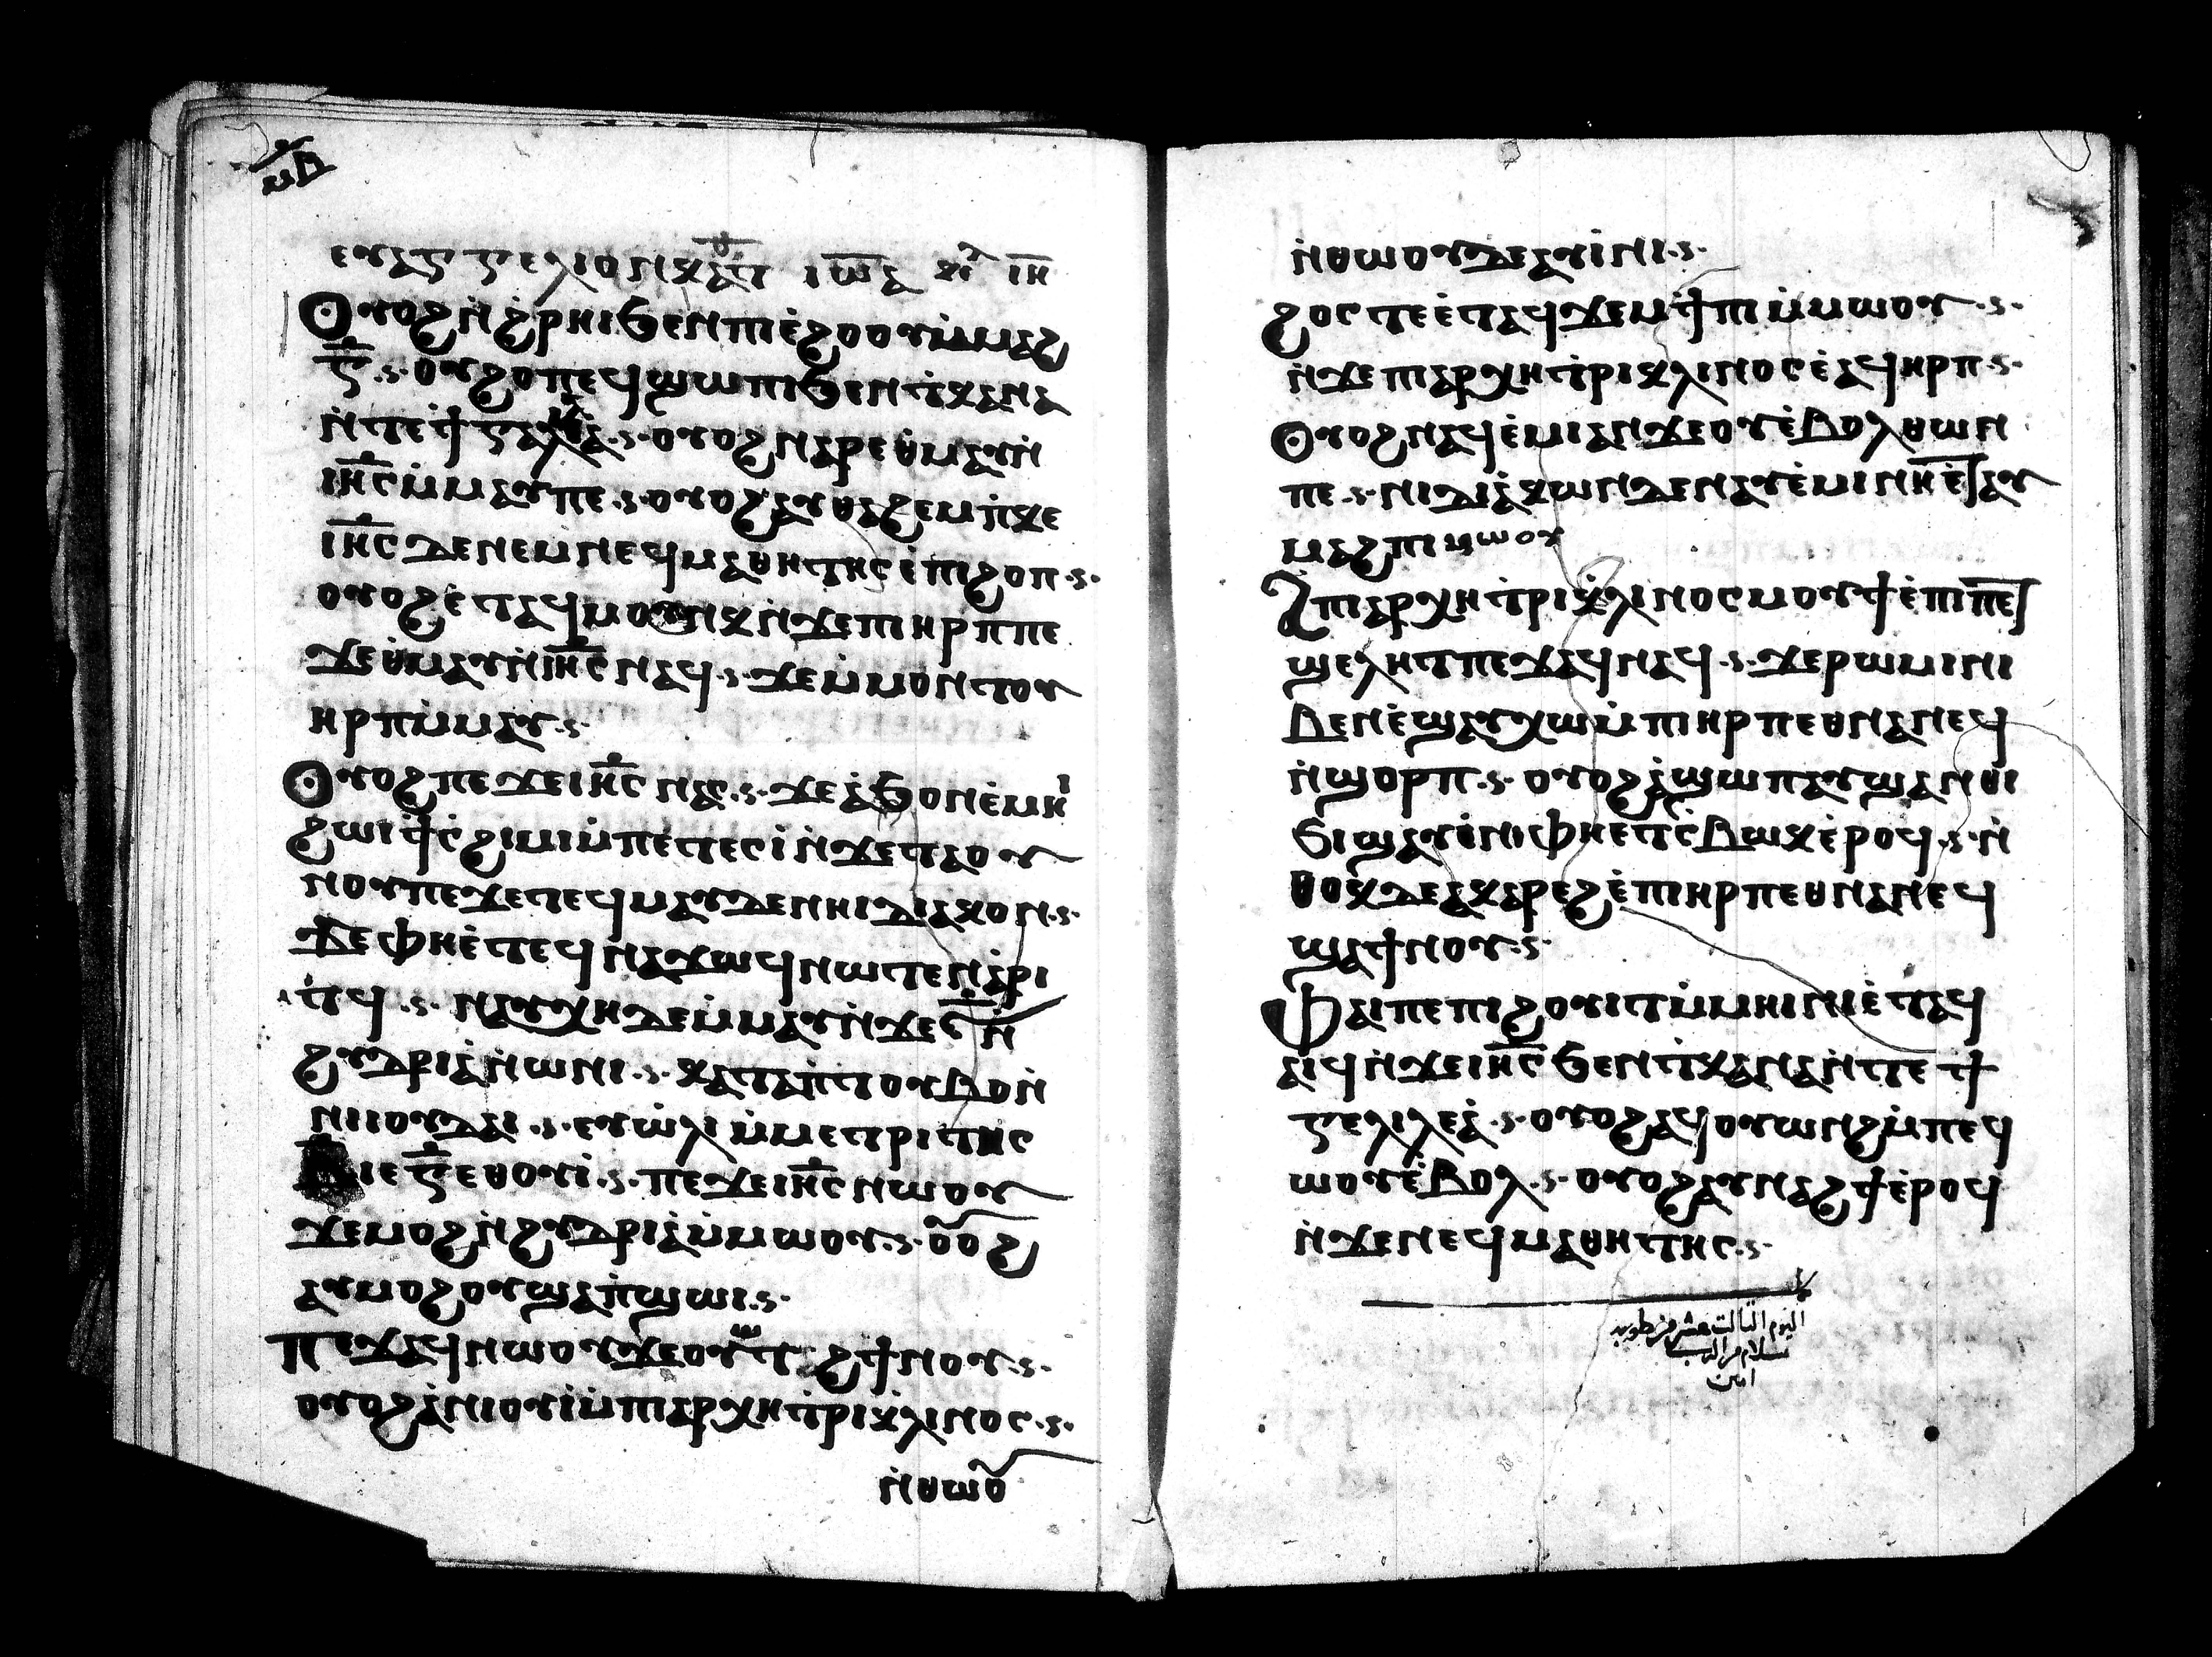 ⲙⲃ
ⲉⲩⲁⲅⲅⲉⲗⲓⲟⲛ ⲕⲁⲧ ⲓⲱⲁ ⲕⲉ ⲓⲏ
Ⲟⲩⲟϩ ⲛ̀ϩ̀ⲣⲏⲓ ϧⲉⲛ ⲡⲓⲉ̀ϩⲟⲟⲩ ⲙ̀ⲙⲁϩ
ⲅ̅ ·ⲋ· ⲟⲩϩⲟⲡ ⲉϥϣⲱⲡⲓ ϧⲉⲛ ⲧ̀ⲕⲁⲛⲁ
ⲛ̀ⲧⲉ ϯⲅⲁⲗⲓⲗⲉⲁ̀ ·ⲋ· ⲟⲩⲟϩ ⲛⲁⲣⲉ ⲑ̀ⲙⲁⲩ ⲛ̀
ⲓⲏ̅ⲥ̅ ⲙ̀ⲙⲁⲩ ⲡⲉ ·ⲋ· ⲟⲩⲟϩ ⲁⲩⲑⲁϩⲉⲙ ⲡ̀ⲕⲉ
ⲓⲏ̅ⲥ̅ ⲇⲉ ⲛⲉⲙ ⲛⲉϥⲙⲁⲑⲏⲧⲏⲥ ⲉ̀ⲡⲓϩⲟⲡ ·ⲋ·
ⲟⲩⲟϩ ⲉ̀ⲧⲁϥⲙⲟⲩⲛⲕ ⲛ̀ϫⲉ ⲡⲓⲏⲣⲡ ⲡⲉ
ϫⲉ ⲑ̀ⲙⲁⲩ ⲛ̀ⲓⲏ̅ⲥ̅ ⲛⲁϥ ·ⲋ· ϫⲉ ⲙ̀ⲙⲟⲛⲧⲟⲩ
ⲏⲣⲡ ⲙ̀ⲙⲁⲩ ·ⲋ·
Ⲟⲩⲟϩ ⲡⲉϫⲉ ⲓⲏ̅ⲥ̅ ⲛⲁⲥ ·ⲋ· ϫⲉ ⲁ̀ϧⲟ ⲛⲉⲙⲏⲓ
ϩⲱⲓ ϯⲥ̀ϩⲓⲙⲓ ⲙ̀ⲡⲉⲧⲉⲥⲓ̀ ⲛ̀ϫⲉ ⲧⲁⲟⲩ
ⲛⲟⲩ ⲡⲉϫⲉ ⲧⲉϥⲙⲁⲩ ⲇⲉ ⲛⲏⲓⲇⲓⲁⲕⲟⲛ ·ⲋ·
ϫⲉ ⲫⲏⲉ̀ⲧⲉϥⲛⲁϫⲱϥ ⲛⲱⲧⲉⲛ ⲁ̀ⲣⲓ
ⲧϥ ·ⲋ· ⲛⲁⲩⲭⲏ ⲇⲉ ⲙ̀ⲙⲁⲩ ⲛ̀ϫⲉ ⲋ̅ ⲛ̀
ϩⲩⲇⲣⲓⲁ̀ ⲛ̀ⲱⲛⲓ ·ⲋ· ⲕⲁⲧⲁ ⲡ̀ⲧⲟⲩⲃⲟ ⲛ̀
ⲛⲓⲓⲟⲩⲇⲁⲓ ·ⲋ· ⲉⲩⲱ̀ⲗⲓ ⲙ̀ⲙⲉⲧⲣⲓⲧⲏⲥ
ⲃ̅ ⲓⲉ ⲅ̅ ⲉⲑⲟⲩⲓ̀ ·ⲋ· ⲡⲉϫⲉ ⲓⲏ̅ⲥ̅ ⲛⲱⲟⲩ
ϫⲉ ⲙⲟϩ ⲛ̀ϩⲩⲇⲣⲓⲁ̀ ⲙ̀ⲙⲱⲟⲩ ·ⲋ· ⲟⲟϩ
ⲁⲩⲙⲟϩⲟⲩ ϣⲁ ⲡ̀ϣⲱⲓ ·ⲋ·
Ⲡⲉϫⲁϥ ⲛⲱⲟⲩ ϫⲉ ⲟⲩⲱⲧϩ ϯⲛⲟⲩ ·ⲋ·
ⲟⲩⲟϩ ⲁ̀ⲛⲓⲟⲩⲓ̀ ⲙ̀ⲡⲓⲁⲣⲭⲏⲧ̀ⲣⲓⲕ̀ⲗⲓⲛⲟⲥ ·ⲋ·
ⲛ̀ⲑⲱⲟⲩ
ⲛ̀ⲑⲱⲟⲩ ⲇⲉ ⲁⲩⲓ̀ⲛⲓ ·ⲋ·
ϩⲟⲥⲧⲉ ⲉ̀ⲧⲁϥϫⲉⲙϯⲡⲓ ⲙ̀ⲙⲱⲟⲩ ·ⲋ·
ⲛ̀ϫⲉ ⲡⲓⲁⲣⲭⲏⲧ̀ⲣⲓⲕⲗⲓⲛⲟⲥ ⲉ̀ⲁϥⲏⲣⲡ ·ⲋ·
Ⲟⲩⲟϩ ⲛⲁϥⲉ̀ⲙⲓ ⲁⲛ ϫⲉ ⲟⲩⲉ̀ⲃⲟⲗ ⲑⲱⲛ
ⲡⲉ ·ⲋ· ⲛⲓⲇⲓⲁ̀ⲕⲱⲛ ⲇⲉ ⲛⲁⲩⲉ̀ⲙⲓ ⲛⲏⲉ̀ⲧⲁⲩ
ⲙⲁϩ ⲡⲓⲙⲱⲟⲩ
Ⲁ̀ ⲡⲓⲁⲣⲭⲏⲧ̀ⲣⲓⲕ̀ⲗⲓⲛⲟⲥ ⲙⲟⲩϯ ⲉ̀ⲡⲓⲡⲉⲧ
ϣⲉⲗⲏⲧ ⲡⲉϫⲁϥ ⲛⲁϥ ·ⲋ· ϫⲉ ⲣⲱⲙⲓ ⲛⲓ
ⲃⲉⲛ ⲉ̀ϣⲁⲩⲭⲱ ⲙ̀ⲡⲓⲏⲣⲡ ⲉⲑⲛⲁⲛⲉϥ
ⲛ̀ϣⲟⲣⲡ ·ⲋ· ⲟⲩⲟϩ ⲁ̀ϣⲱⲡ ⲁⲩϣⲁⲛⲑⲓ
ϧⲓ ϣⲁⲩⲓ̀ⲛⲓ ⲫⲏⲉⲧⲥ̀ⲃⲱⲕ ⲉ̀ⲣⲟϥ ·ⲋ· ⲛ̀
ⲑⲟⲕ ⲇⲉ ⲁⲕⲁⲣⲉϩ ⲉ̀ⲡⲓⲏⲣⲡ ⲉⲑⲛⲁⲛⲉϥ
ϣⲁ ϯⲛⲟⲩ ·ⲋ·
Ⲫⲁⲓ ⲡⲉ ⲡⲓϩⲟⲩⲓⲧ ⲙ̀ⲙⲏⲓⲛⲓ ⲉ̀ⲧⲁϥ
ⲁⲓϥ ⲛ̀ϫⲉ ⲓⲏ̅ⲥ̅ ϧⲉⲛ ⲧ̀ⲕⲁⲛⲁ ⲛ̀ⲧⲉ ϯ
ⲅⲉⲗⲓⲗⲉⲁ̀ ·ⲋ· ⲟⲩⲟϩ ⲁϥⲟⲩⲱⲛϩ ⲙ̀ⲡⲉϥ
ⲱⲟⲩ ⲉ̀ⲃⲟⲗ ·ⲋ· ⲟⲩⲟϩ ⲁⲩⲛⲁϩϯ ⲉ̀ⲣⲟϥ
ⲛ̀ϫⲉ ⲛⲉϥⲙⲁⲑⲏⲧⲏⲥ ·ⲋ·
اليوم الثالث عشر من طوبه
بسلام من الرب
امين